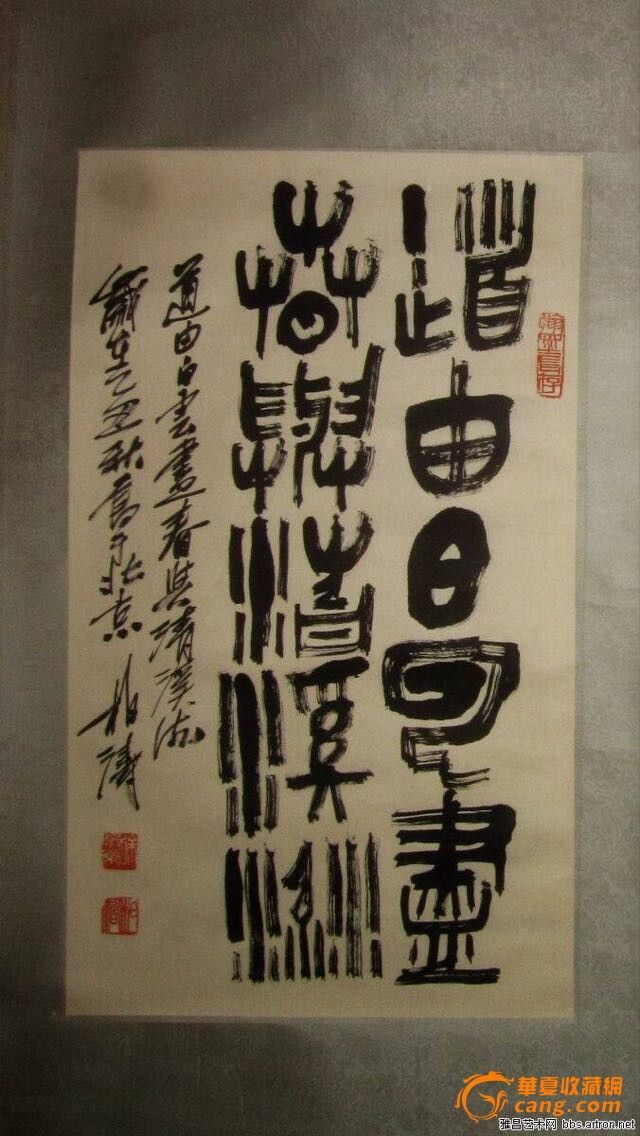 道由白云盡
春與清溪流
道由白云盡春與清溪流
歲在乙丑秋寫于北京
華夏收藏網
cang.com
雅昌艺术网 bbs.artron.net